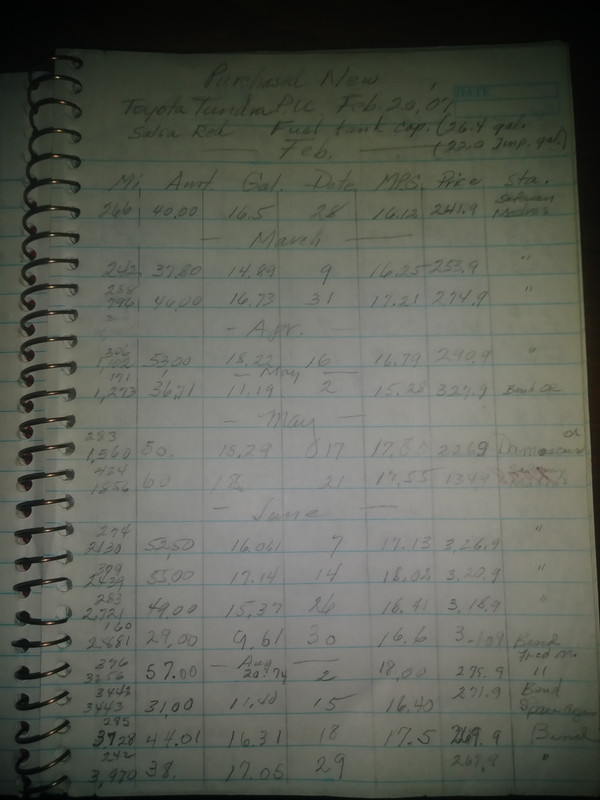 Purchased New
DATE
Toyota Tundra P/U, Feb. 20, '07
Salsa Red Fuel tank cap. (26.4 gal.
Feb. (22.0 Imp. gal.)
Mi. Amt. Gal. Date MPG. Price Sta.
266 40.00 16.5 28 16.12 241.9
- March -
242 37.80 14.89 9 16.25 253.9 "
796 46.00 16.73 31 17.21 274.9 "
- Apr. -
306
1,102 53.00 18.22 16 16.79 290.9 "
- May -
171
1,273 36.71 11.19 2 15.28 327.9 Bend OR
- May -
283 or
1,560 50. 15.29 17 Damascus
1856 60 18. 21 17.55
- June -
274 "
2130 52.50 16.061 7 17.13 3.26.9
309
2439 55.00 17.14 14 18.02 3.20.9 "
283
2,721 49.00 15.37 26 18.41 3.18.9 "
160
2881 29.00 9.61 30 16.6 Bend
- Aug - Fred M.
376
3256 57.00 20.74 2 18.00 275.9 "
3443 31.00 11.40 15 16.40 271.9 Bend
285
3,728 44.01 16.31 18 17.5 269.9 Bend
242
3,970 38. 17.05 29 267.9 "